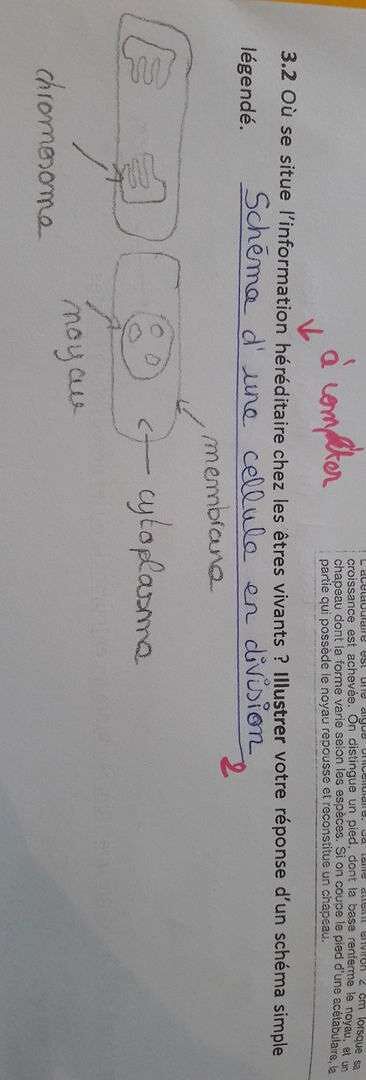 L'acétabulaire est une algue unicellulaire. Sa taille atteint environ 2 cm lorsque sa
croissance est achevée. On distingue un pied, dont la base renferme le noyau, et un
chapeau dont la forme varie selon les espèces. Si on coupe le pied d'une acétabulaire, la
partie qui possède le noyau repousse et reconstitue un chapeau.
à compléter
3.2 Où se situe l'information héréditaire chez les êtres vivants ? Illustrer votre réponse d'un schéma simple
légendé.
Schéma d'une cellule en division
2
membrane
cytoplasme
noyau
chromosome